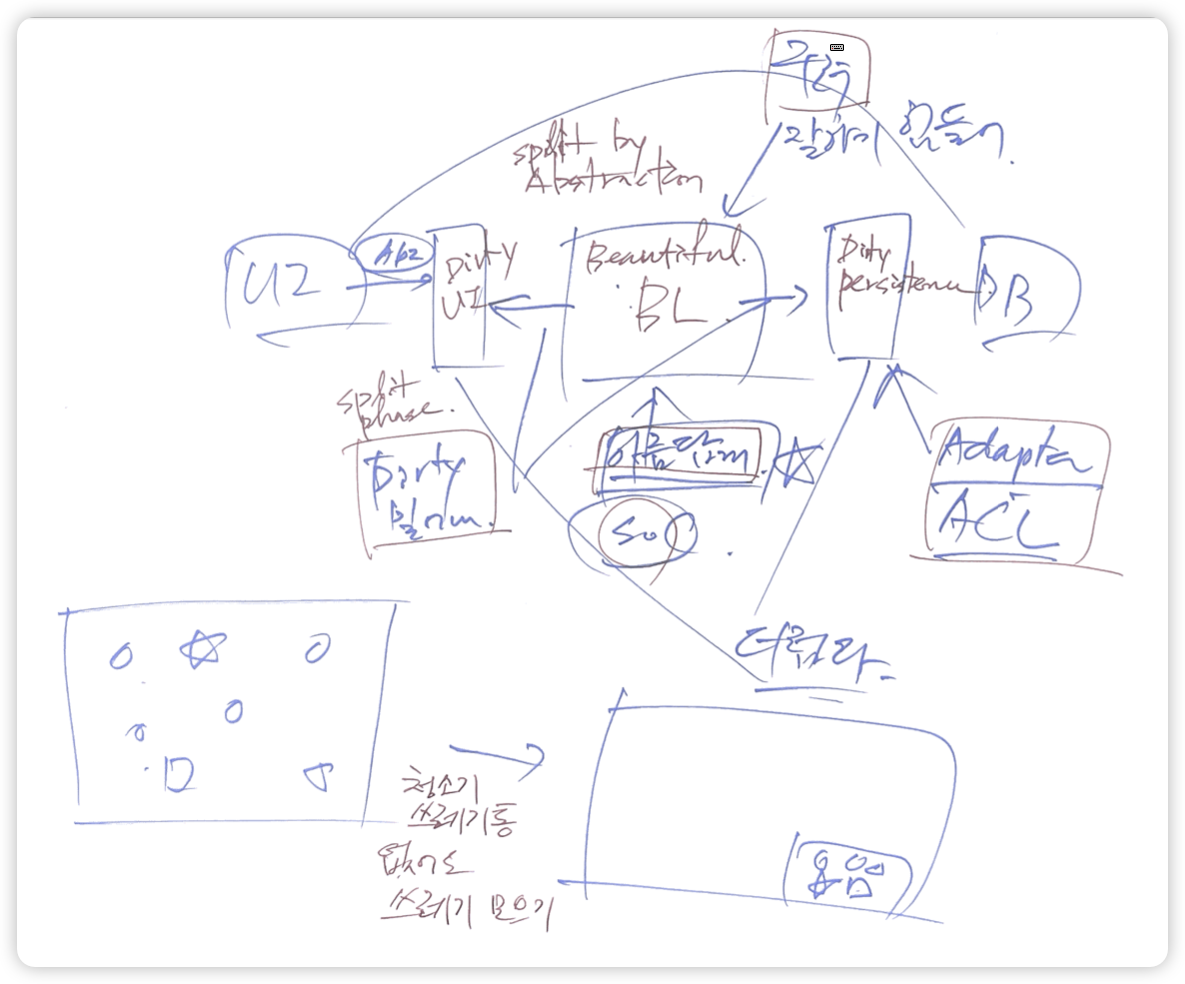 잘하기 힘들어.
split by
Abstraction
UI
API
Dirty
UI
Beautiful.
BL
Dirty
persistence
DB
split
phase.
Dirty
아름답게
SoC
Adapter
ACL
더럽다
청소기
쓰레기통
없어도
쓰레기 모으기